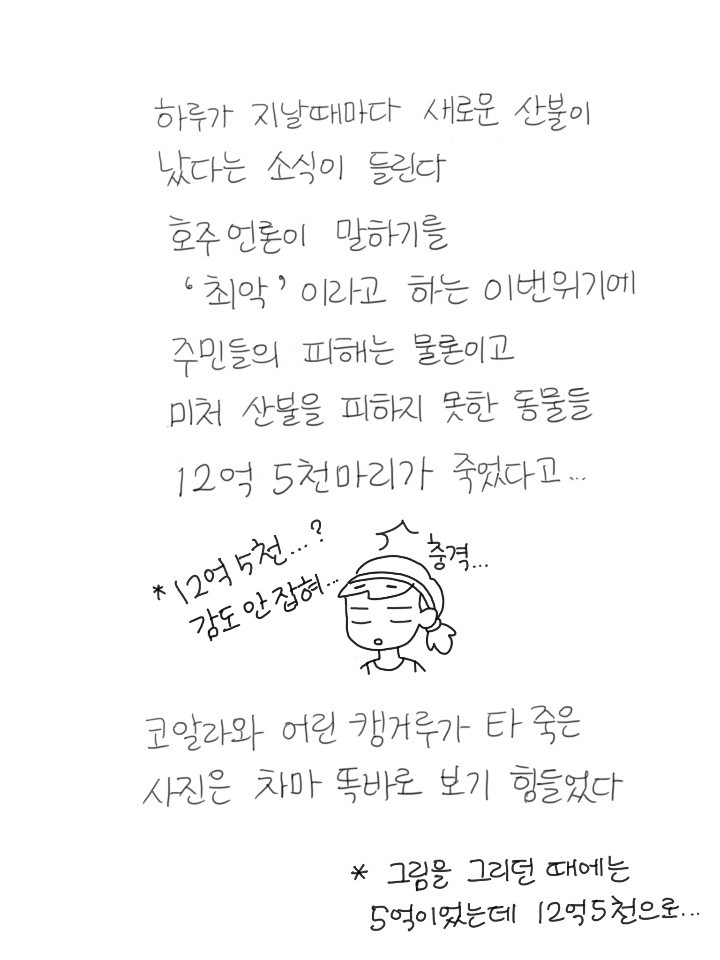 하루가 지날때마다 새로운 산불이
났다는 소식이 들린다
호주 언론이 말하기를
'최악'이라고 하는 이번위기에
주민들의 피해는 물론이고
미처 산불을 피하지 못한 동물들
12억 5천마리가 죽었다고...
*12억 5천...?
감도 안 잡혀...
충격...
코알라와 어린 캥거루가 타 죽은
사진은 차마 똑바로 보기 힘들었다
* 그림을 그리던 때에는
5억이었는데 12억5천으로...